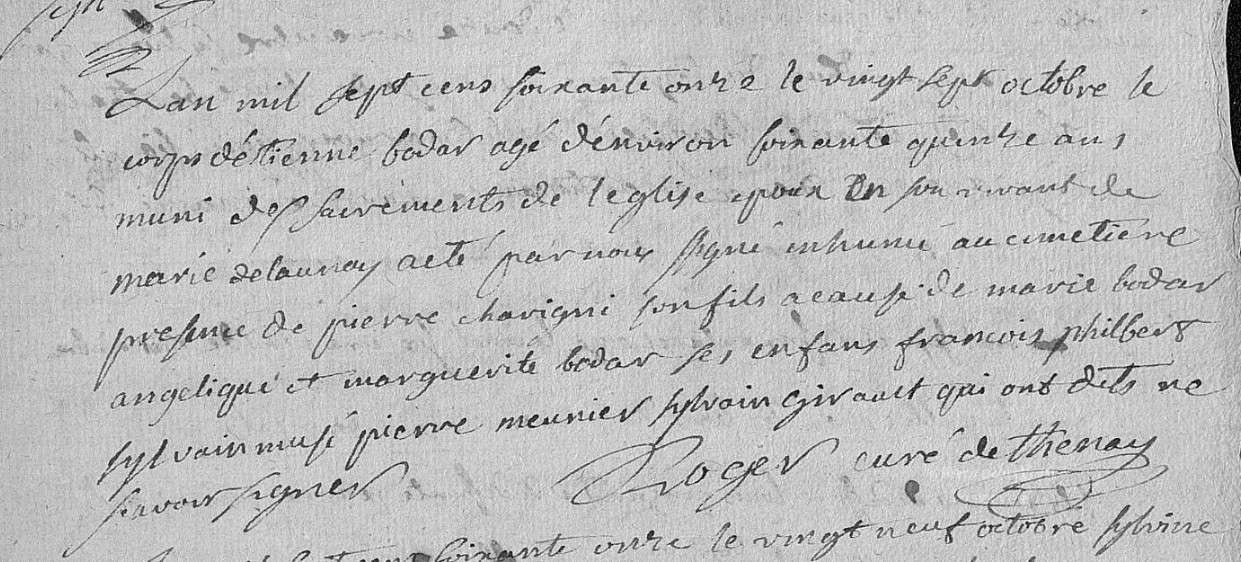 Lan mil sept cens soixante onze le vingt sept octobre le
corps détienne bodar agé dénviron soixante quinze ans
muni des sacréments de léglise epoux en son vivant de
marie delaunay a eté par nous signé inhumé au cimetiere
presence de pierre charigni son fils a cause de marie bodar
angelique et marguerite bodar ses enfans francois philbert
sylvain musé pierre meunier sylvain Girault qui ont dits ne
scavoir signer Roger curé de thenay
soixante onze le vingt neuf octobre sylvine